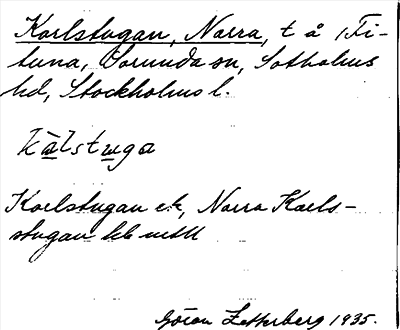 Karlstugan, Norra, t å /Fi-
tuna, Sorunda sn, Sotholms
hd, Stockholms l.
kàlstuga
Karlstugan ek, Norra Karls-
stugan
Göran Zetterberg 1935.